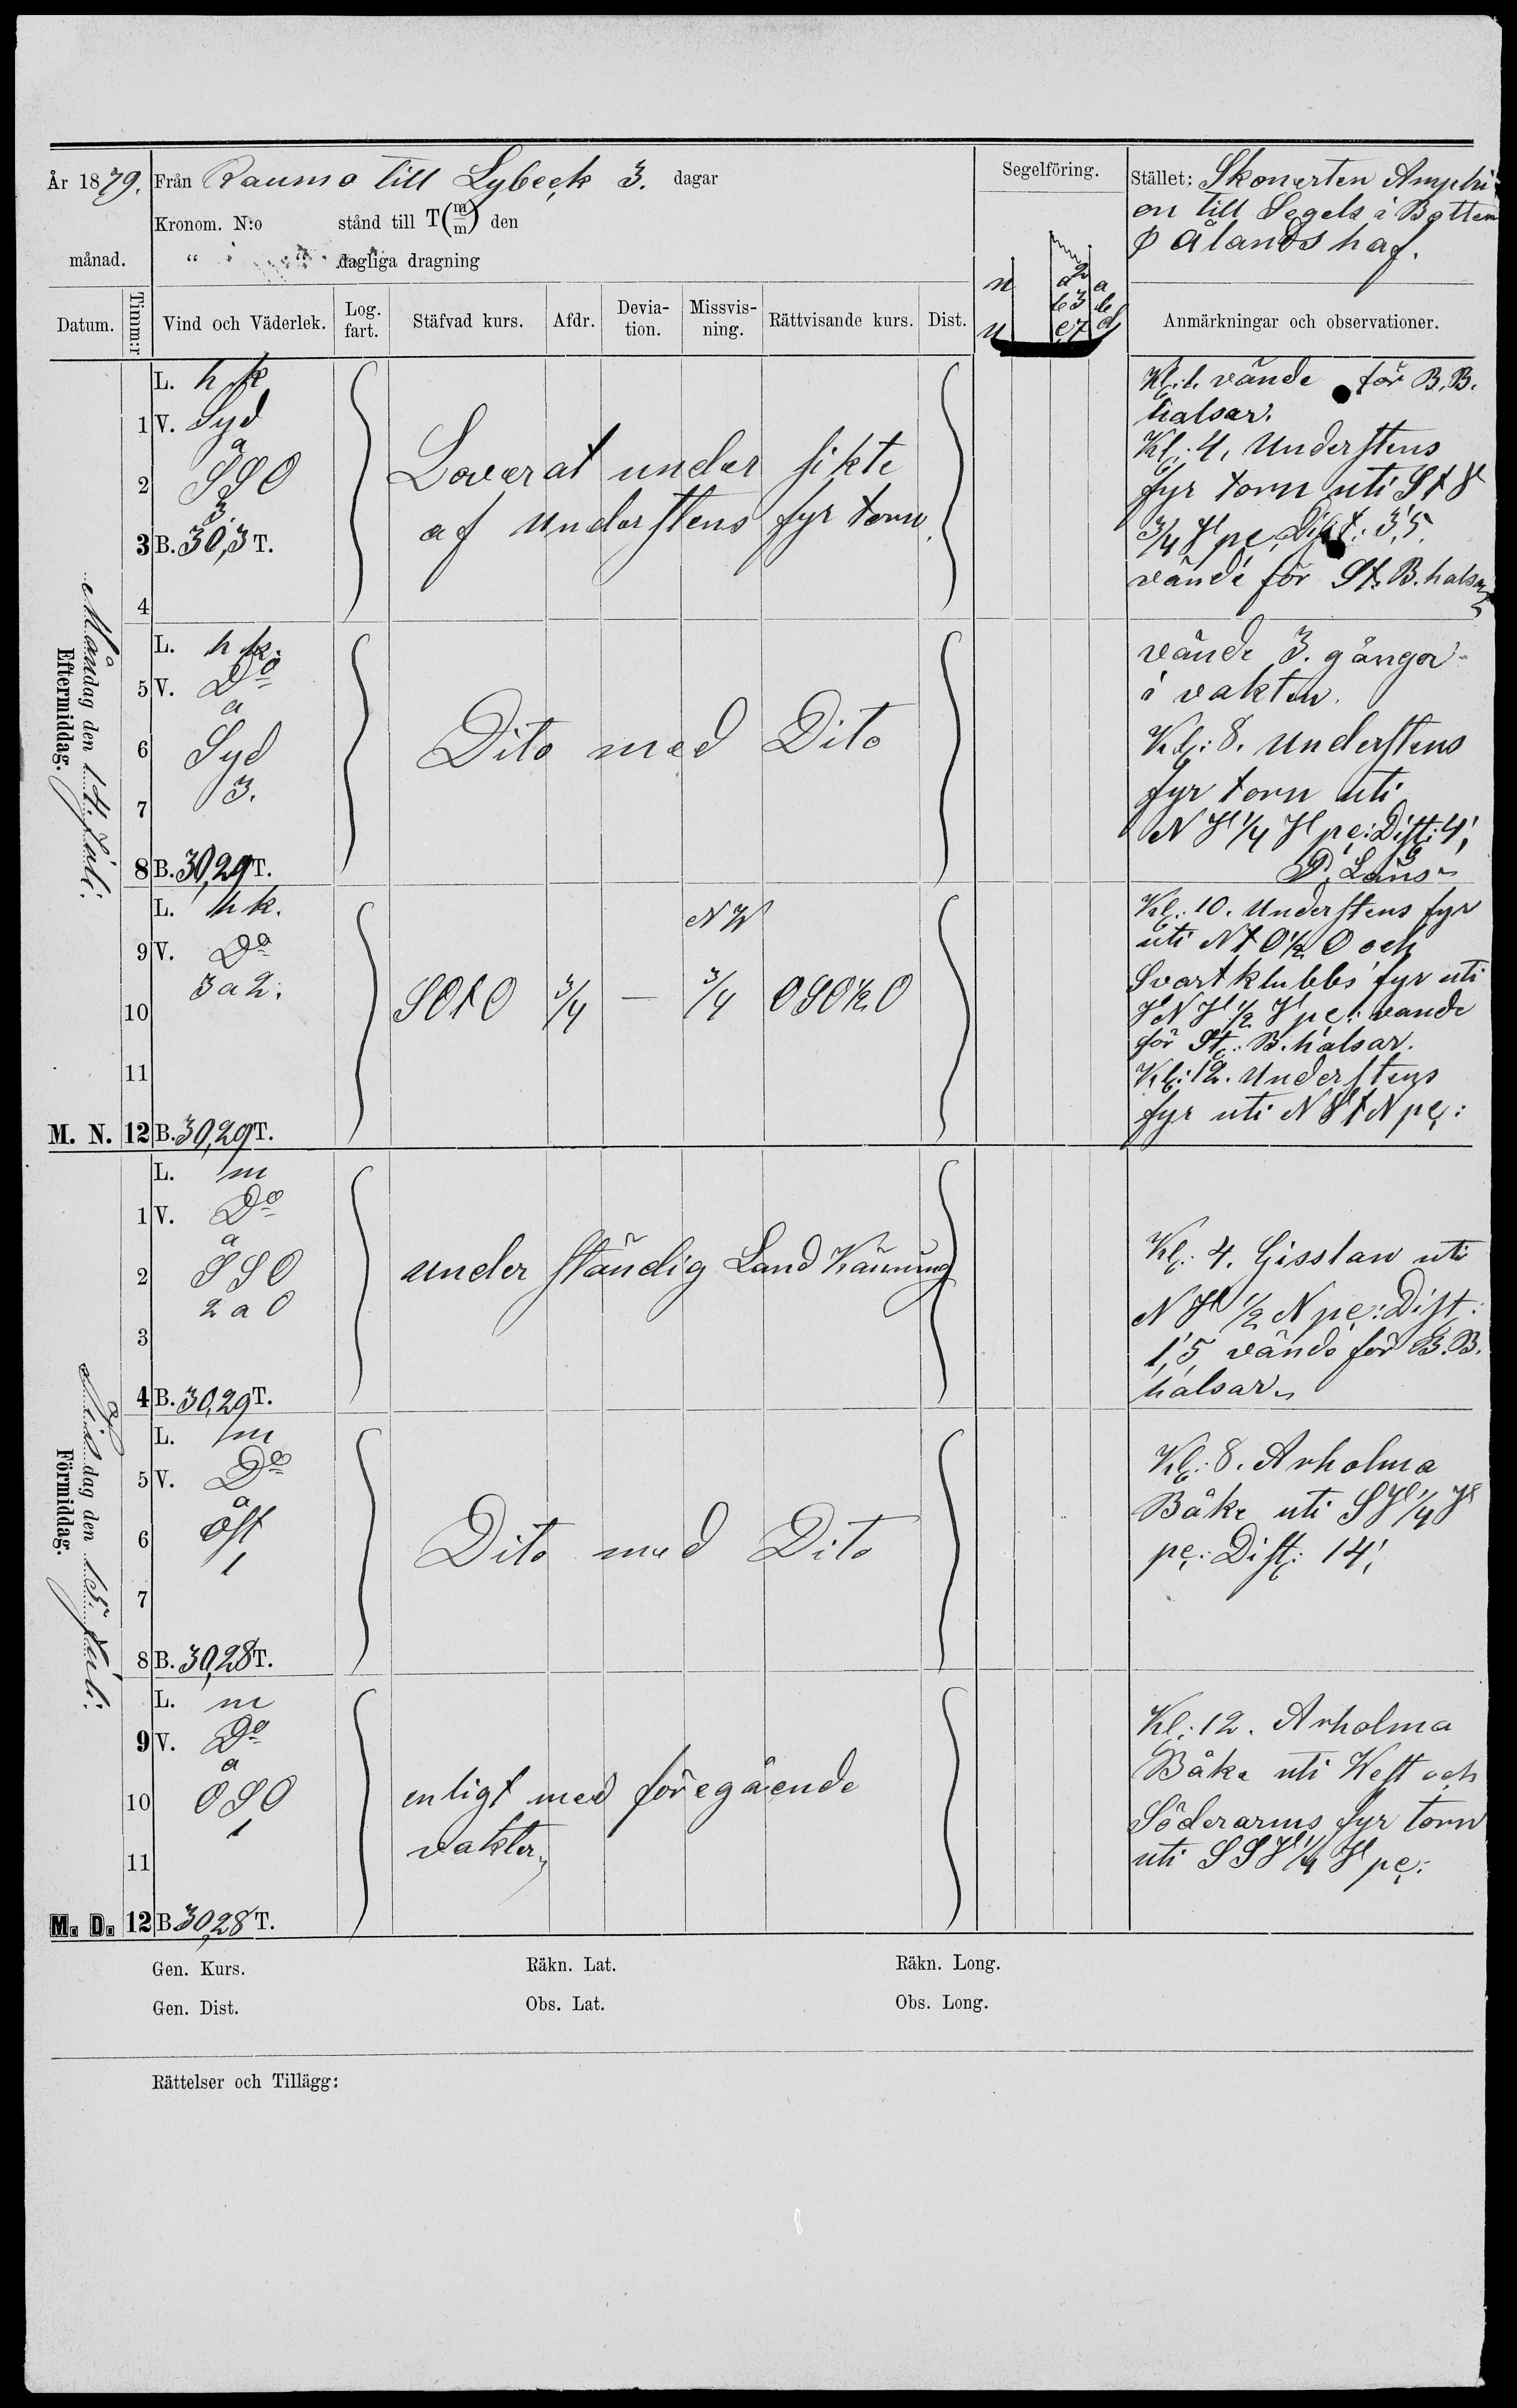 År 1879. Från Raumo till Lybeck 3. dagar
Segelföring.
Stället: Skonerten Amphi-
on till Segels i Botten
Kronom. N:o stånd till T(m/m) den
Ålands haf.
månad. " " dagliga dragning
Datum. Timm:r Vind och Väderlek. Log. fart. Stäfvad kurs. Afdr. Devia-tion. Missvis-ning. Rättvisande kurs. Dist. Anmärkningar och observationer.
Måndag den 14. juli.
Eftermiddag.
L. h k
1 V. Syd
a
2 SSO
3
3 B. 30,3 T.
4
Loverat under sikte
af understens fyr torn.
Kl: 1. vände för B.B.
halsar.
Kl: 4. Understens
fyr torn uti
3/4 pe, Dist: 3,5.
vände för St. B. halsar
L. h k.
5 V. Do
a
6 Syd
3.
7
8 B. 30,29 T.
Dito med Dito
vände 3. gånger
i vakten.
Kl: 8. understens
fyr torn uti
N W 1/4 W pe: Dist: 4'
L. h k.
9 V. Do
3 a 2.
10
11
M. N. 12 B. 30,29 T.
N W
SOtO 3/4 — 3/4 OSO½O
Kl: 10. Understens fyr
uti NtO½O och
Svartklubbs fyr uti
W N W ½ W pe: vände
för St: B. halsar.
Kl: 12. Understens
fyr uti N W t N pe:
Tisdag den 15. juli.
Förmiddag.
L. m
1 V. Do
a
2 SSO
2 a 0
3
4 B. 30,29 T.
under ständig Land Känning
Kl: 4. Gisslan uti
N W ½ N pe: Dist:
1,5 vände för B.B.
halsar
L. m
5 V. Do
a
6 Ost
1
7
8 B. 30,28 T.
Dito med Dito
Kl: 8. Arholma
Båke uti S W 1/4 W
pe: Dist: 14'
L. m
9 V. Do
a
10 OSO
1
11
M. D. 12 B 30,28 T.
enligt med föregående
vakter
Kl: 12. Arholma
Båke uti West och
Söderarms fyr torn
uti S S W 1/4 W pe:
Gen. Kurs. Räkn. Lat. Räkn. Long.
Gen. Dist. Obs. Lat. Obs. Long.
Rättelser och Tillägg: